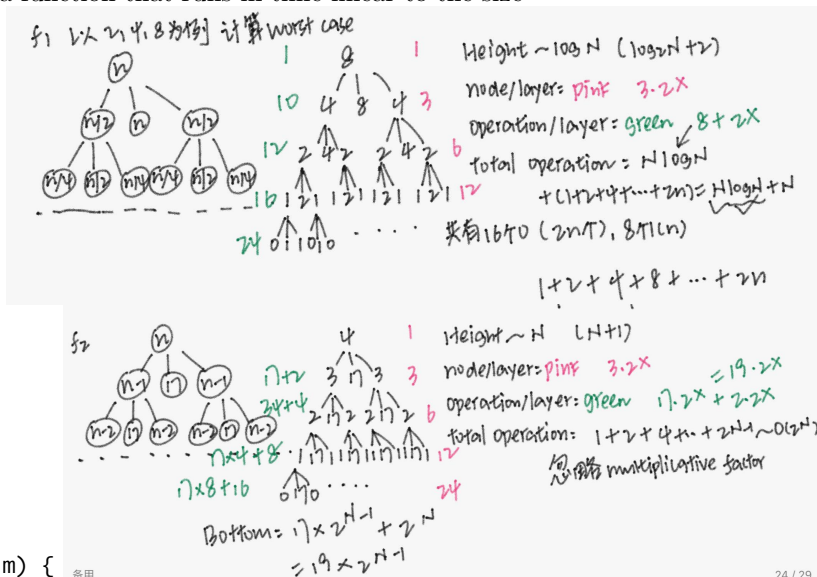 a function that runs in time linear to the size
f1 以2,4,8为例 计算 worst case
n
n/2 n n/2
n/4 n/2 n/4 n/4 n/2 n/4
1 8 1
10 4 8 4 3
12 2 4 2 2 4 2 6
16 1 2 1 1 2 1 1 2 1 1 2 1 12
24 0 1 1 0 1 0 ....
Height ~ log N (log2N+2)
node/layer: pink 3·2X
operation/layer: green 8+2X
total operation = NlogN
+(1+2+4+...+2n)= NlogN+N
共有16个0 (2n个), 8个1(n)
1+2+4+8+...+2n
f2
n
n-1 17 n-1
n-2 17 n-2 n-2 17 n-2
4 1
17+2 3 17 3 3
34+4 2 17 2 2 17 2 6
17×4+8 1 17 1 1 17 1 1 17 1 1 17 1 12
17×8+16 0 17 0 .... 24
Bottom= 17×2^N-1 + 2^N
=19×2^N-1
Height ~ N (N+1)
node/layer: pink 3·2X
operation/layer: green 17·2X+2·2X =19·2X
total operation: 1+2+4+...+2^N-1~O(2^N)
忽略 multiplicative factor
m) {
备用
24 / 29